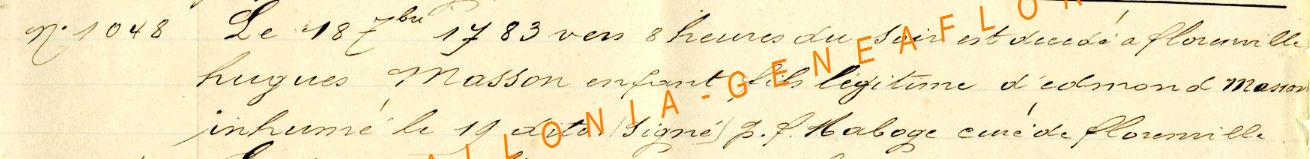 N° 1048 Le 18 7bre 1783 vers 8 heures du soir est décédé a florenville
hugues Masson enfant, fils légitime d'edmond Masson
inhumé le 19 dito (signé) J. f. Haboge curé de florenville
ALLONIA-GENEAFLOR